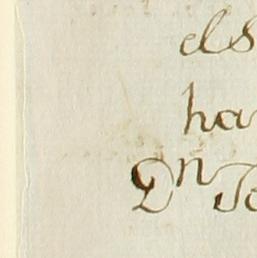 els
ha
Dn Jo